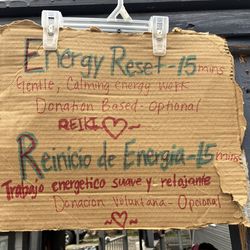 Energy Reset-15 mins
Gentle, Calming energy work
Donation Based-Optional
REIKI
Reinicio de Energia-15 mins
Trabajo energetico suave y relajante
Donación Voluntaria-Opcional